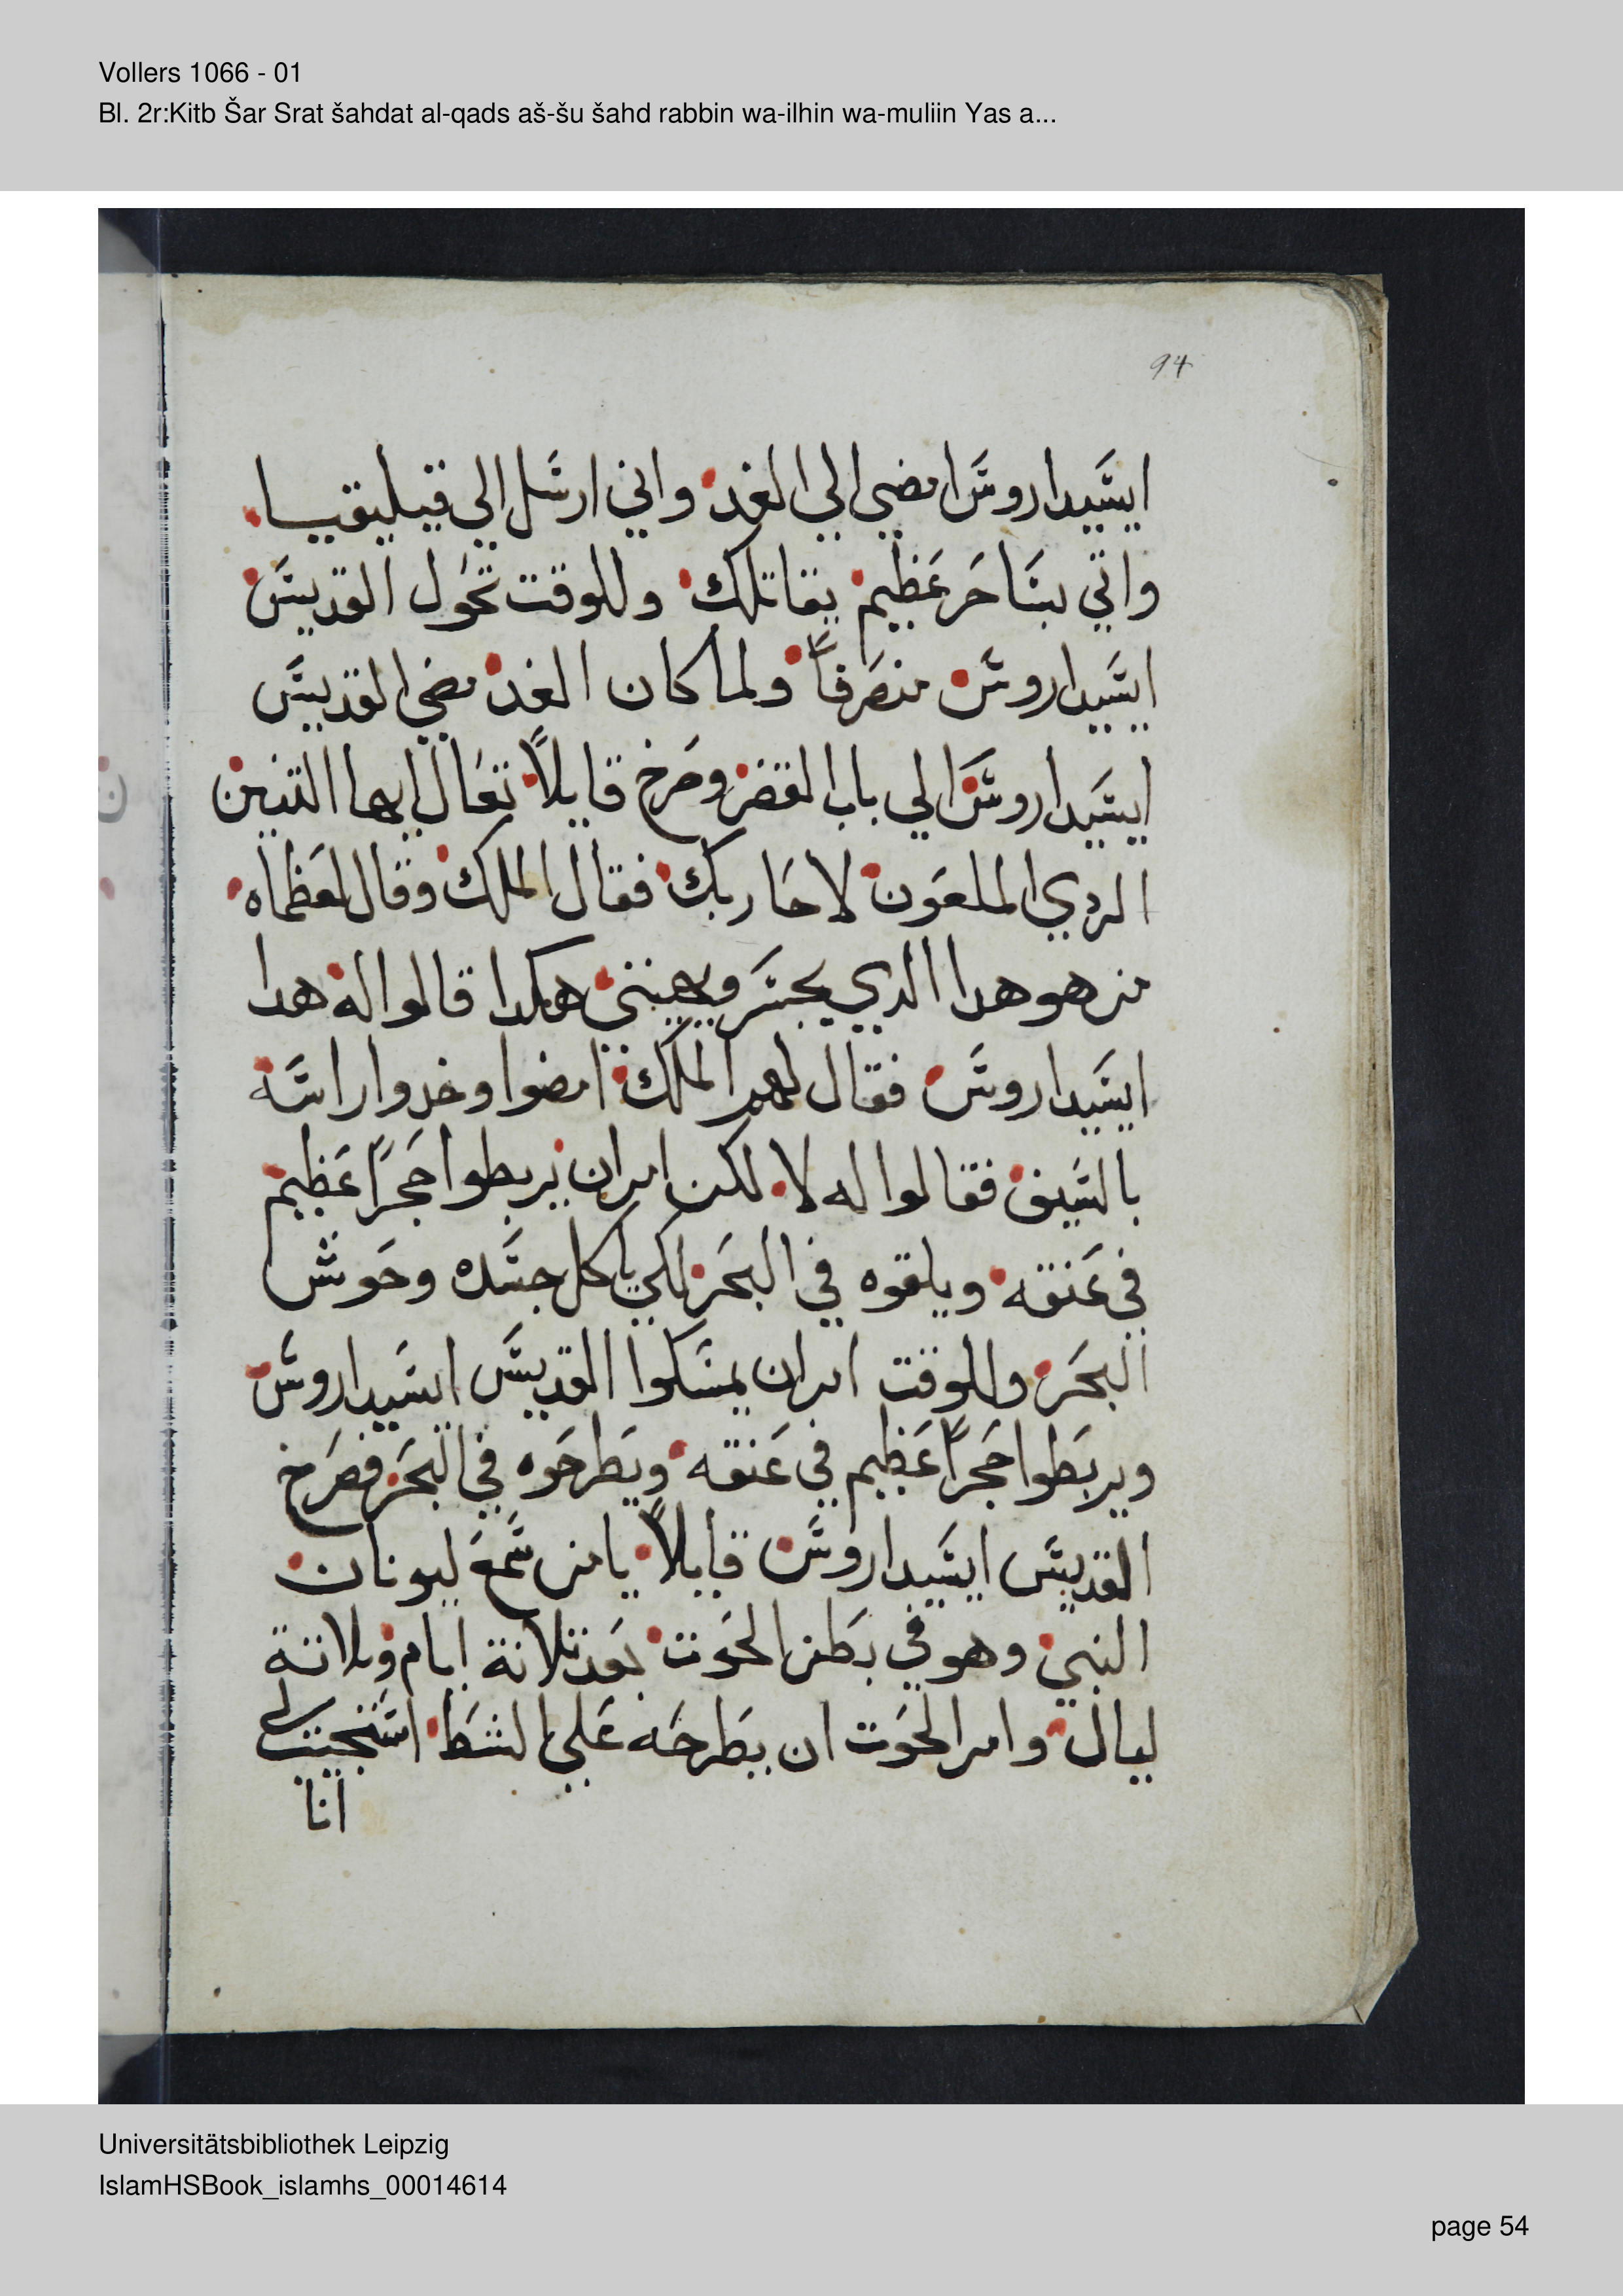 Vollers 1066 - 01
Bl. 2r:Kitb Šar Srat šahdat al-qads aš-šu šahd rabbin wa-ilhin wa-muliin Yas a...
94
ايسَيدا روسَ امضي الي الغد واني ارسَل الي قيليقيسا
واتي بسَاحَر عَظيم يقاتلك وللوقت تحَول القديسَ
ايسَيدا روسَ منصَرفاً ولما كان الغد مضي القديسَ
ايسَيدا روسَ الي باب القصَر وصَرخ قايلاً تعَال ايها التنين
الردي الملعَون لاحَاربك فقال الملك وقال لعَظماه
من هو هدا الدي يجسَر ويهينني هكدا قالوا له هدا
ايسَيدا روسَ فقال لهم الملك امضوا وخدوا راسَه
بالسَيف فقالوا له لا لكن امر ان يربطوا حَجراً عَظيم
في عَنقه ويلقوه في البحَر لكي ياكل جسَده وحَوش
البحَر وللوقت امر ان يمسَكوا القديسَ ايسَيدا روسَ
ويربَطوا حَجراً عَظيم في عَنقه ويَطرحَوه في البحَر فصَرخ
القديسَ ايسَيدا روسَ قايلاً يا من سَمعَ ليونان
النبي وهو في بطَن الحَوت بعَد تلاتة ايام وتلاتة
ليال وامر الحَوت ان يطَرحَه عَلي الشط اسَتجيب لي
انا
Universitätsbibliothek Leipzig
IslamHSBook_islamhs_00014614
page 54